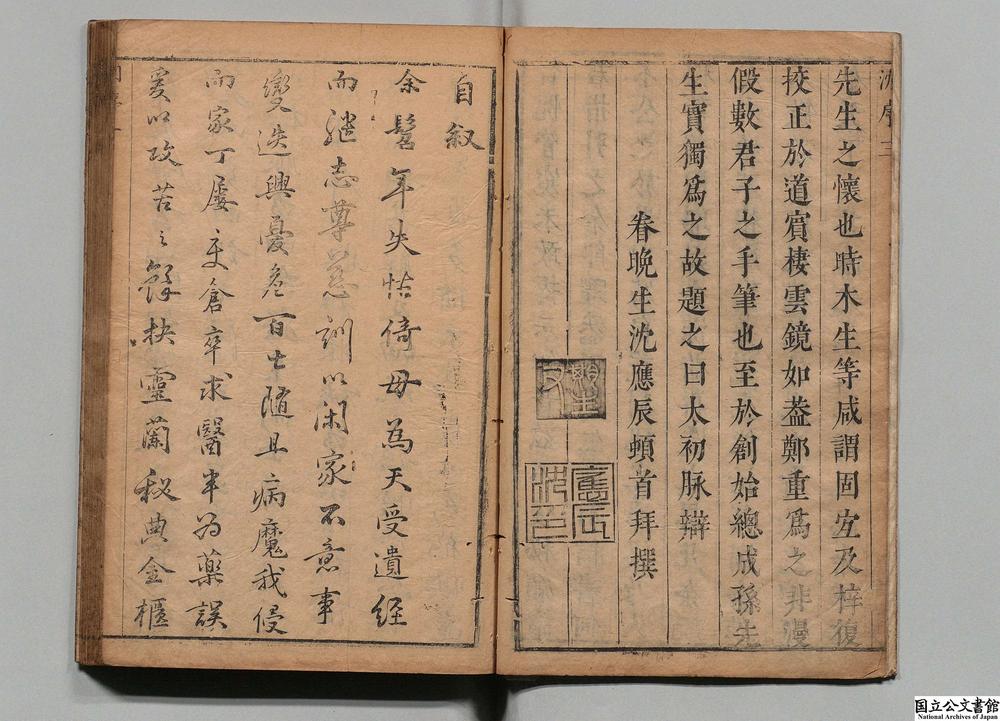 沈序三
先生之懷也時木生等咸謂固宐及梓復
挍正於道賓棲雲鏡如葢鄭重爲之非漫
假數君子之手筆也至於創始總成孫先
生實獨爲之故題之曰太初脉辯
眷晚生沈應辰頓首拜撰
應辰
自叙
余髫年失怙倚母為天受遺經
而繼志尊慈訓以閑家不意事
變迭興憂危百出随且病魔我侵
而家丁屡变倉卒求醫半为藥誤
爰以攻苦之餘抉靈蘭秘典金櫃
国立公文書館
National Archives of Japan